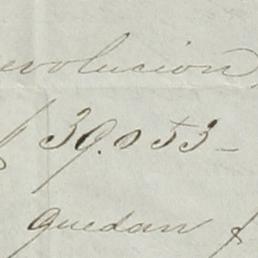 evolucion,
$ 39.053-
quedan $